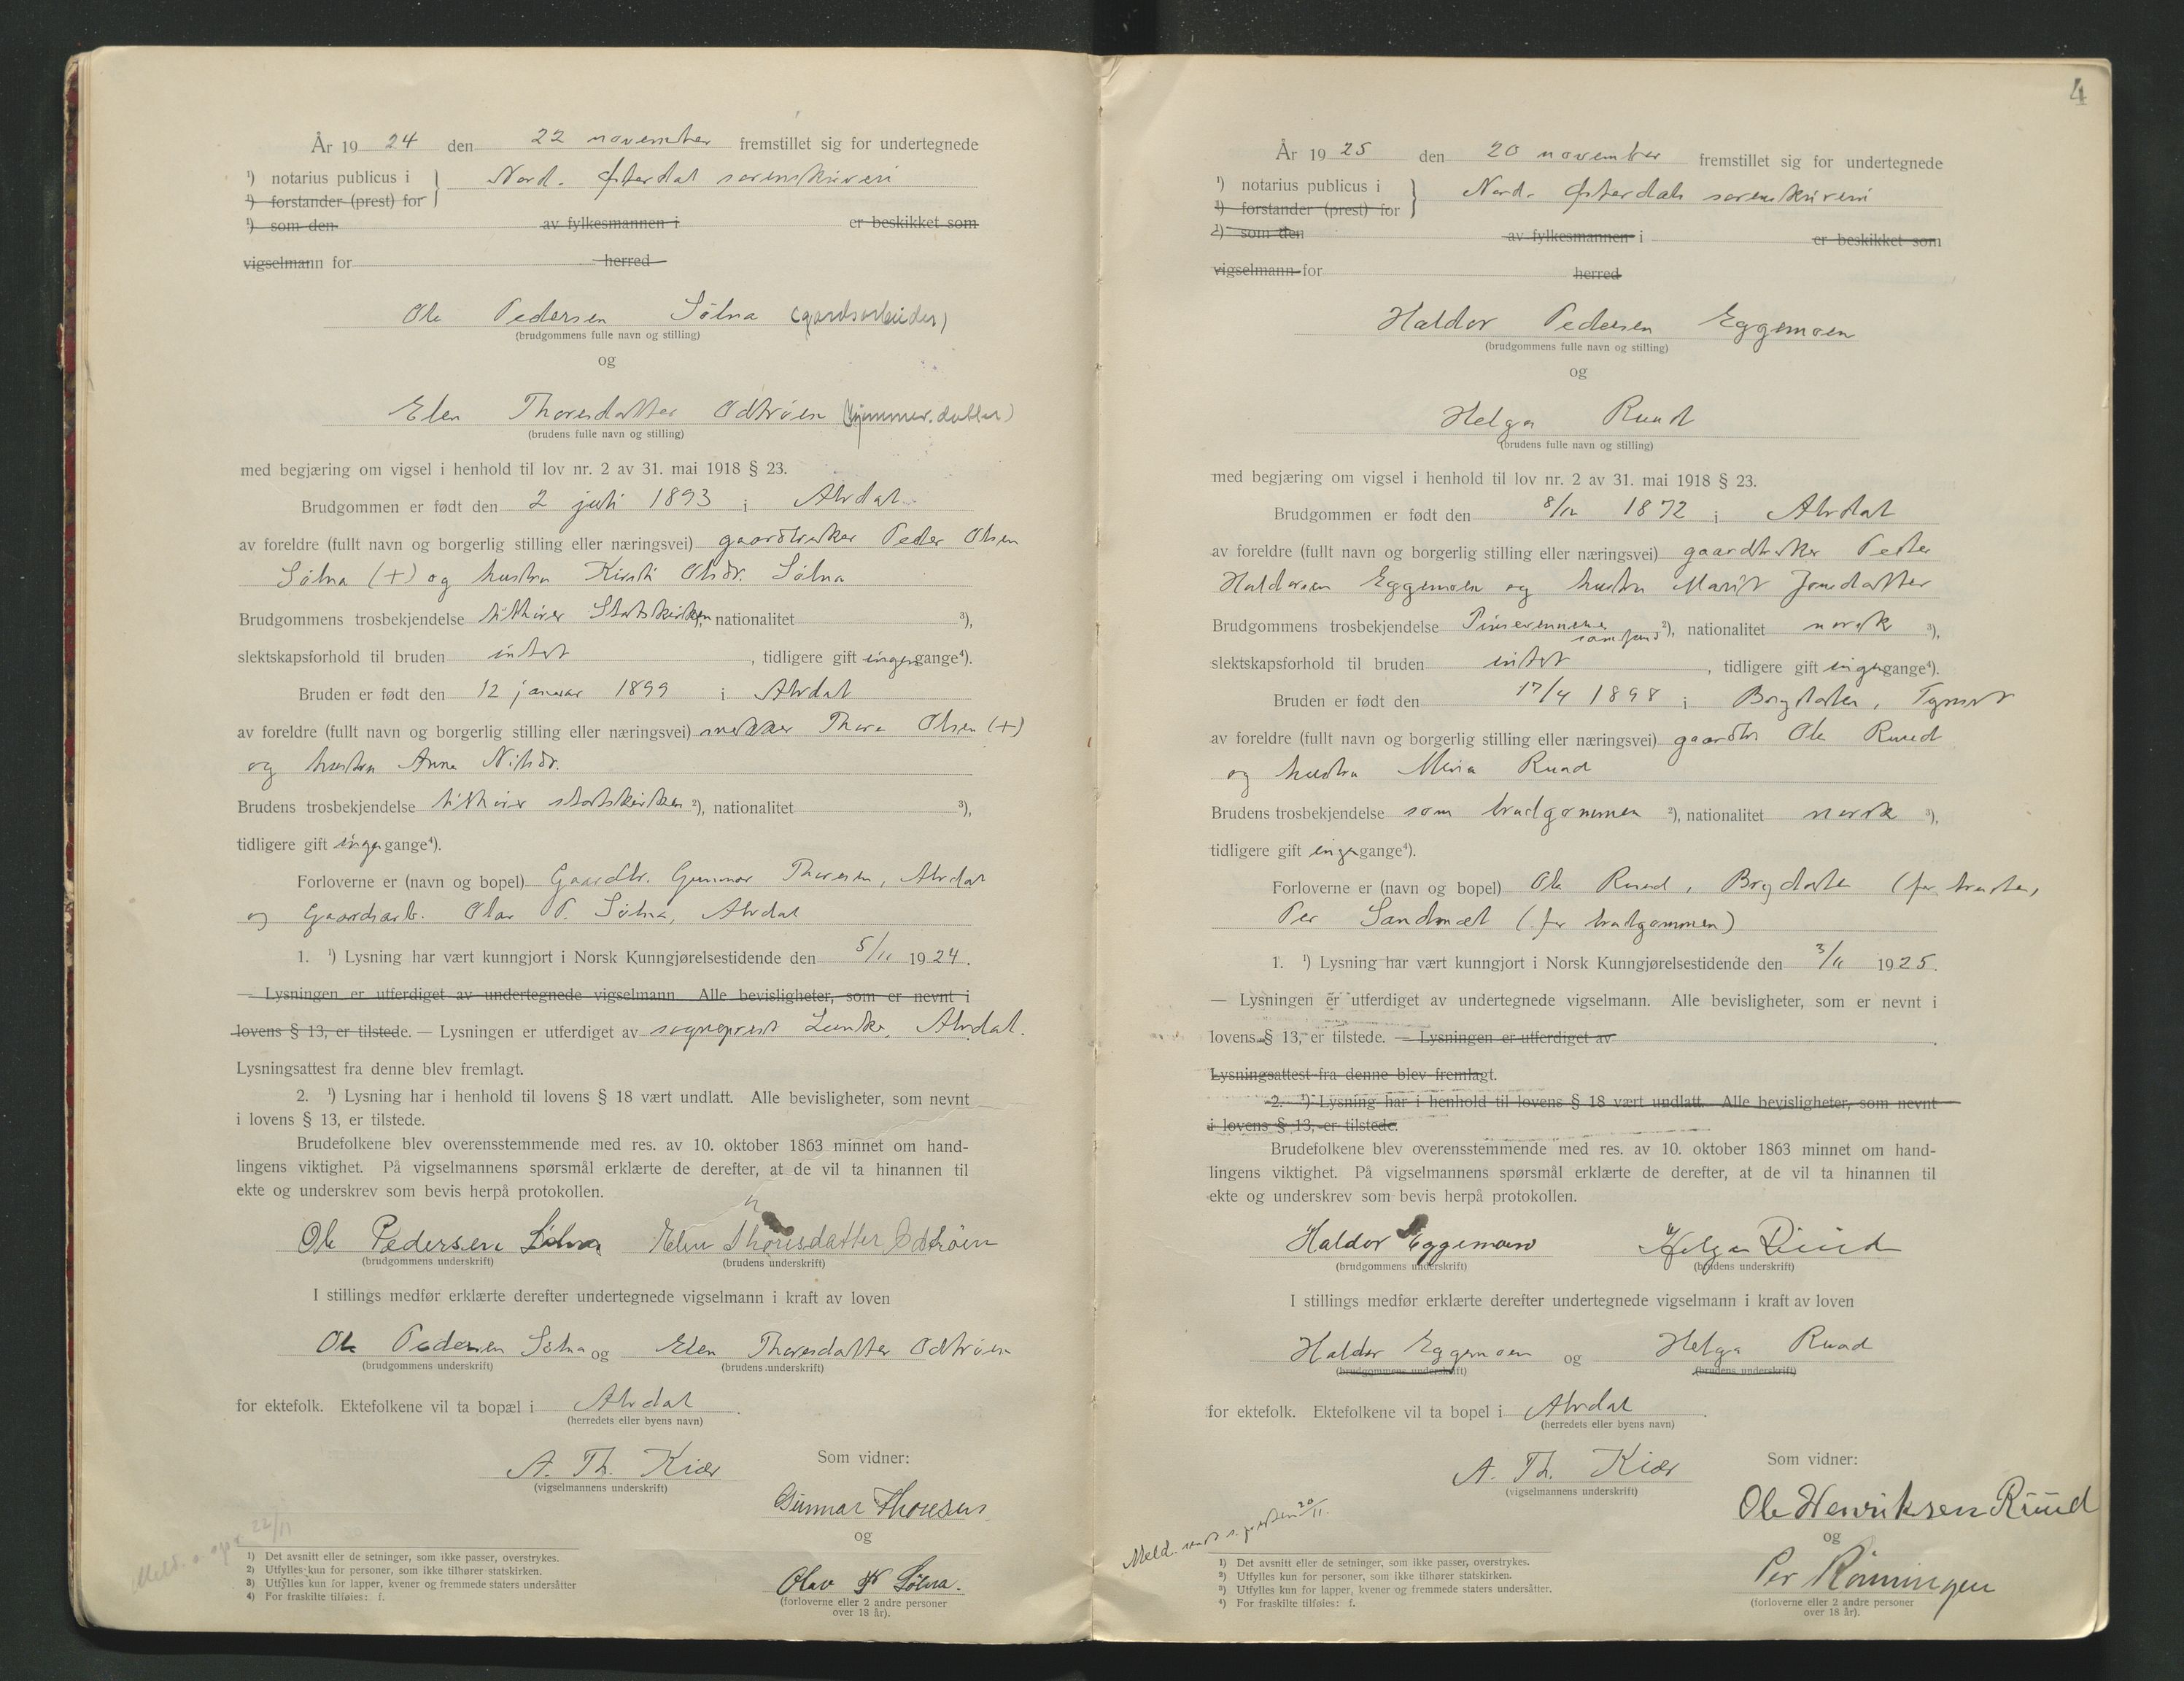 År 19 24 den 22 november fremstillet sig for undertegnede
¹) notarius publicus i } Nord. Østerdal sorenskriveri
¹) forstander (prest) for
¹) som den av fylkesmannen i er beskikket som
vigselmann for herred
Ole Pedersen Sölna (gardsarbeider)
(brudgommens fulle navn og stilling)
og
Elen Thoresdatter Odtröen (hjemmev. datter)
(brudens fulle navn og stilling)
med begjæring om vigsel i henhold til lov nr. 2 av 31. mai 1918 § 23.
Brudgommen er født den 2 juli 1893 i Alvdal
av foreldre (fullt navn og borgerlig stilling eller næringsvei) gaardbruker Peder Olsen
Sölna (+) og hustru Kirsti Olsdr. Sölna
Brudgommens trosbekjendelse tilhører Statskirken, nationalitet ³),
slektskapsforhold til bruden intet , tidligere gift ingen gange⁴).
Bruden er født den 12 januar 1899 i Alvdal
av foreldre (fullt navn og borgerlig stilling eller næringsvei) snekker Thore Olsen (+)
og hustru Anne Nilsdr.
Brudens trosbekjendelse tilhører statskirken ²), nationalitet ³),
tidligere gift ingen gange⁴).
Forloverne er (navn og bopel) Gaardbr. Gunnar Thoresen, Alvdal
og Gaardsarb. Olav P. Sölna, Alvdal
1. ¹) Lysning har vært kunngjort i Norsk Kunngjørelsestidende den 5/11 19 24.
— Lysningen er utferdiget av undertegnede vigselmann. Alle bevisligheter, som er nevnt i
lovens § 13, er tilstede. — Lysningen er utferdiget av sogneprest Lunke, Alvdal.
Lysningsattest fra denne blev fremlagt.
2. ¹) Lysning har i henhold til lovens § 18 vært undlatt. Alle bevisligheter, som nevnt
i lovens § 13, er tilstede.
Brudefolkene blev overensstemmende med res. av 10. oktober 1863 minnet om hand-
lingens viktighet. På vigselmannens spørsmål erklærte de derefter, at de vil ta hinannen til
ekte og underskrev som bevis herpå protokollen.
Ole Pedersen Sölna Elen Thoresdatter Odtröen
(brudgommens underskrift) (brudens underskrift)
I stillings medfør erklærte derefter undertegnede vigselmann i kraft av loven
Ole Pedersen Sölna og Elen Thoresdatter Odtröen
(brudgommens underskrift) (brudens underskrift)
for ektefolk. Ektefolkene vil ta bopæl i Alvdal.
(herredets eller byens navn)
A. Th. Kiær
(vigselmannens underskrift)
Som vidner:
Gunnar Thoresen
og
Olav P Sölna.
(forloverne eller 2 andre personer
over 18 år).
22/11
1) Det avsnitt eller de setninger, som ikke passer, overstrykes.
2) Utfylles kun for personer, som ikke tilhører statskirken.
3) Utfylles kun for lapper, kvener og fremmede staters undersåtter
4) For fraskilte tilføies: f.
4
År 19 25 den 20 november fremstillet sig for undertegnede
¹) notarius publicus i } Nord. Østerdals sorenskriveri
¹) forstander (prest) for
¹) som den av fylkesmannen i er beskikket som
vigselmann for herred
Haldor Pedersen Eggemoen
(brudgommens fulle navn og stilling)
og
Helga Ruud
(brudens fulle navn og stilling)
med begjæring om vigsel i henhold til lov nr. 2 av 31. mai 1918 § 23.
Brudgommen er født den 8/12 1872 i Alvdal
av foreldre (fullt navn og borgerlig stilling eller næringsvei) gaardbruker Peder
Haldorsen Eggemoen og hustru Marit Jonsdatter
Brudgommens trosbekjendelse Pinsevennene samfund ²), nationalitet norsk ³),
slektskapsforhold til bruden intet , tidligere gift ingen gange⁴).
Bruden er født den 17/4 1898 i Brydalen, Tynset
av foreldre (fullt navn og borgerlig stilling eller næringsvei) gaardbr Ole Ruud
og hustru Mina Ruud
Brudens trosbekjendelse som brudgommen ²), nationalitet norsk ³),
tidligere gift ingen gange⁴).
Forloverne er (navn og bopel) Ole Ruud, Brydalen (for bruden)
Per Sandmæl (for brudgommen)
1. ¹) Lysning har vært kunngjort i Norsk Kunngjørelsestidende den 3/11 19 25.
— Lysningen er utferdiget av undertegnede vigselmann. Alle bevisligheter, som er nevnt i
lovens § 13, er tilstede. — Lysningen er utferdiget av .
Lysningsattest fra denne blev fremlagt.
2. ¹) Lysning har i henhold til lovens § 18 vært undlatt. Alle bevisligheter, som nevnt
i lovens § 13, er tilstede.
Brudefolkene blev overensstemmende med res. av 10. oktober 1863 minnet om hand-
lingens viktighet. På vigselmannens spørsmål erklærte de derefter, at de vil ta hinannen til
ekte og underskrev som bevis herpå protokollen.
Haldor Eggemoen Helga Ruud
(brudgommens underskrift) (brudens underskrift)
I stillings medfør erklærte derefter undertegnede vigselmann i kraft av loven
Haldor Eggemoen og Helga Ruud
(brudgommens underskrift) (brudens underskrift)
for ektefolk. Ektefolkene vil ta bopel i Alvdal.
(herredets eller byens navn)
A. Th. Kiær
(vigselmannens underskrift)
Som vidner:
Ole Henriksen Ruud
og
Per Rönningen
(forloverne eller 2 andre personer
over 18 år).
Meld. sendt s. presten 20/11.
1) Det avsnitt eller de setninger, som ikke passer, overstrykes.
2) Utfylles kun for personer, som ikke tilhører statskirken.
3) Utfylles kun for lapper, kvener og fremmede staters undersåtter.
4) For fraskilte tilføies: f.